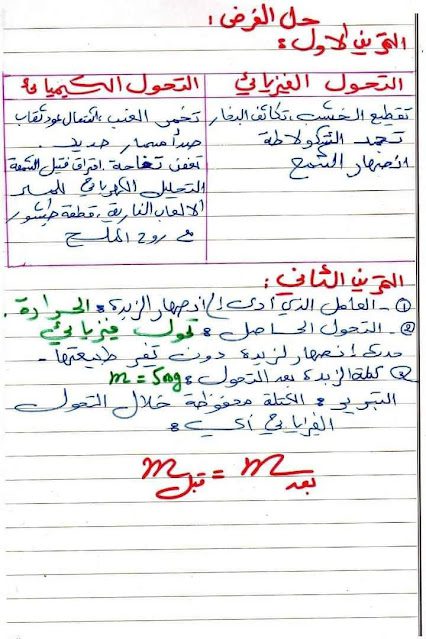 حل الفرض:
التمرين الأول:
التحول الفيزيائي
تقطيع الخشب، تكاثف البخار
تجمد الشكولاطة
انصهار الشمع
التحول الكيميائي
تخمر العنب، اشتعال عود ثقاب
صدأ مسمار حديد.
تعفن تفاحة. احتراق فتيل الشمعة
التحليل الكهربائي للماء
الالعاب النارية، قطعة طبشور
مع روح الملح
التمرين الثاني:
① - العامل الذي أدى إلى انصهار الزبدة: الحرارة.
② - التحول الحاصل: تحول فيزيائي
حدث انصهار لزبدة دون تغير طبيعتها -
③ كتلة الزبدة بعد التحول: m = 50g
التبرير: الكتلة محفوظة خلال التحول
الفيزيائي أي:
m قبل = m بعد